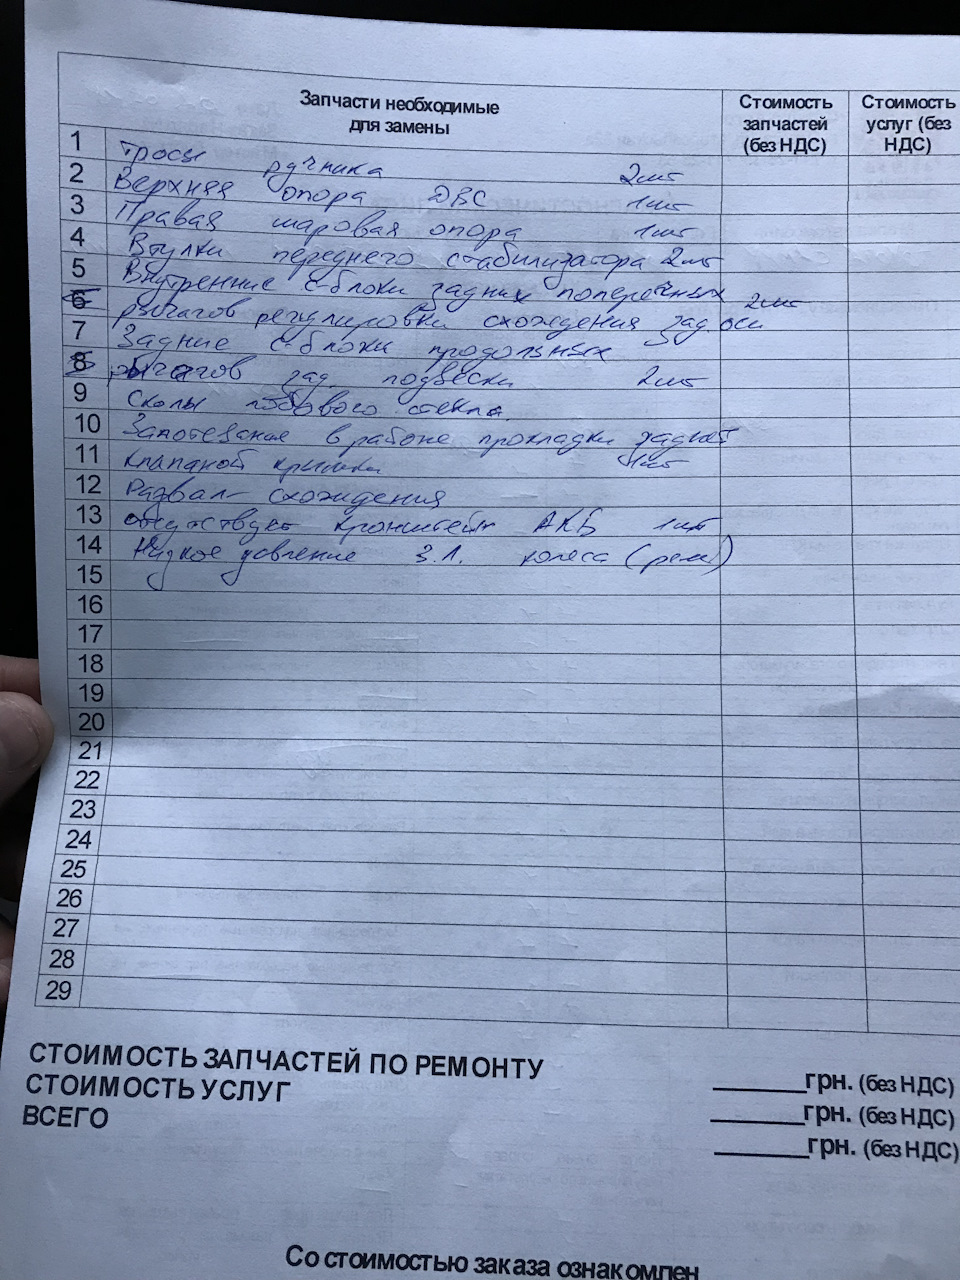 Запчасти необходимые для замены
Стоимость запчастей (без НДС)
Стоимость услуг (без НДС)
1 Тросы ручника 2шт
2 Верхняя опора ДВС 1шт
3 Правая шаровая опора 1шт
4 Втулки переднего стабилизатора 2шт
5 Внутренние с-блоки задних поперечных 2шт
6 рычагов регулировки схождения зад оси
7 Задние с-блоки продольных
8 рычагов зад. подвески 2шт
9 Сколы лобового стекла.
10 Запотевание в районе прокладки задней
11 клапаной крышки 1шт
12 Развал-схождения
13 отсутствует кронштейн АКБ 1шт
14 Низкое давление З.Л. колеса (рем)
15
16
17
18
19
20
21
22
23
24
25
26
27
28
29
СТОИМОСТЬ ЗАПЧАСТЕЙ ПО РЕМОНТУ ______грн. (без НДС)
СТОИМОСТЬ УСЛУГ ______грн. (без НДС)
ВСЕГО ______грн. (без НДС)
Со стоимостью заказа ознакомлен